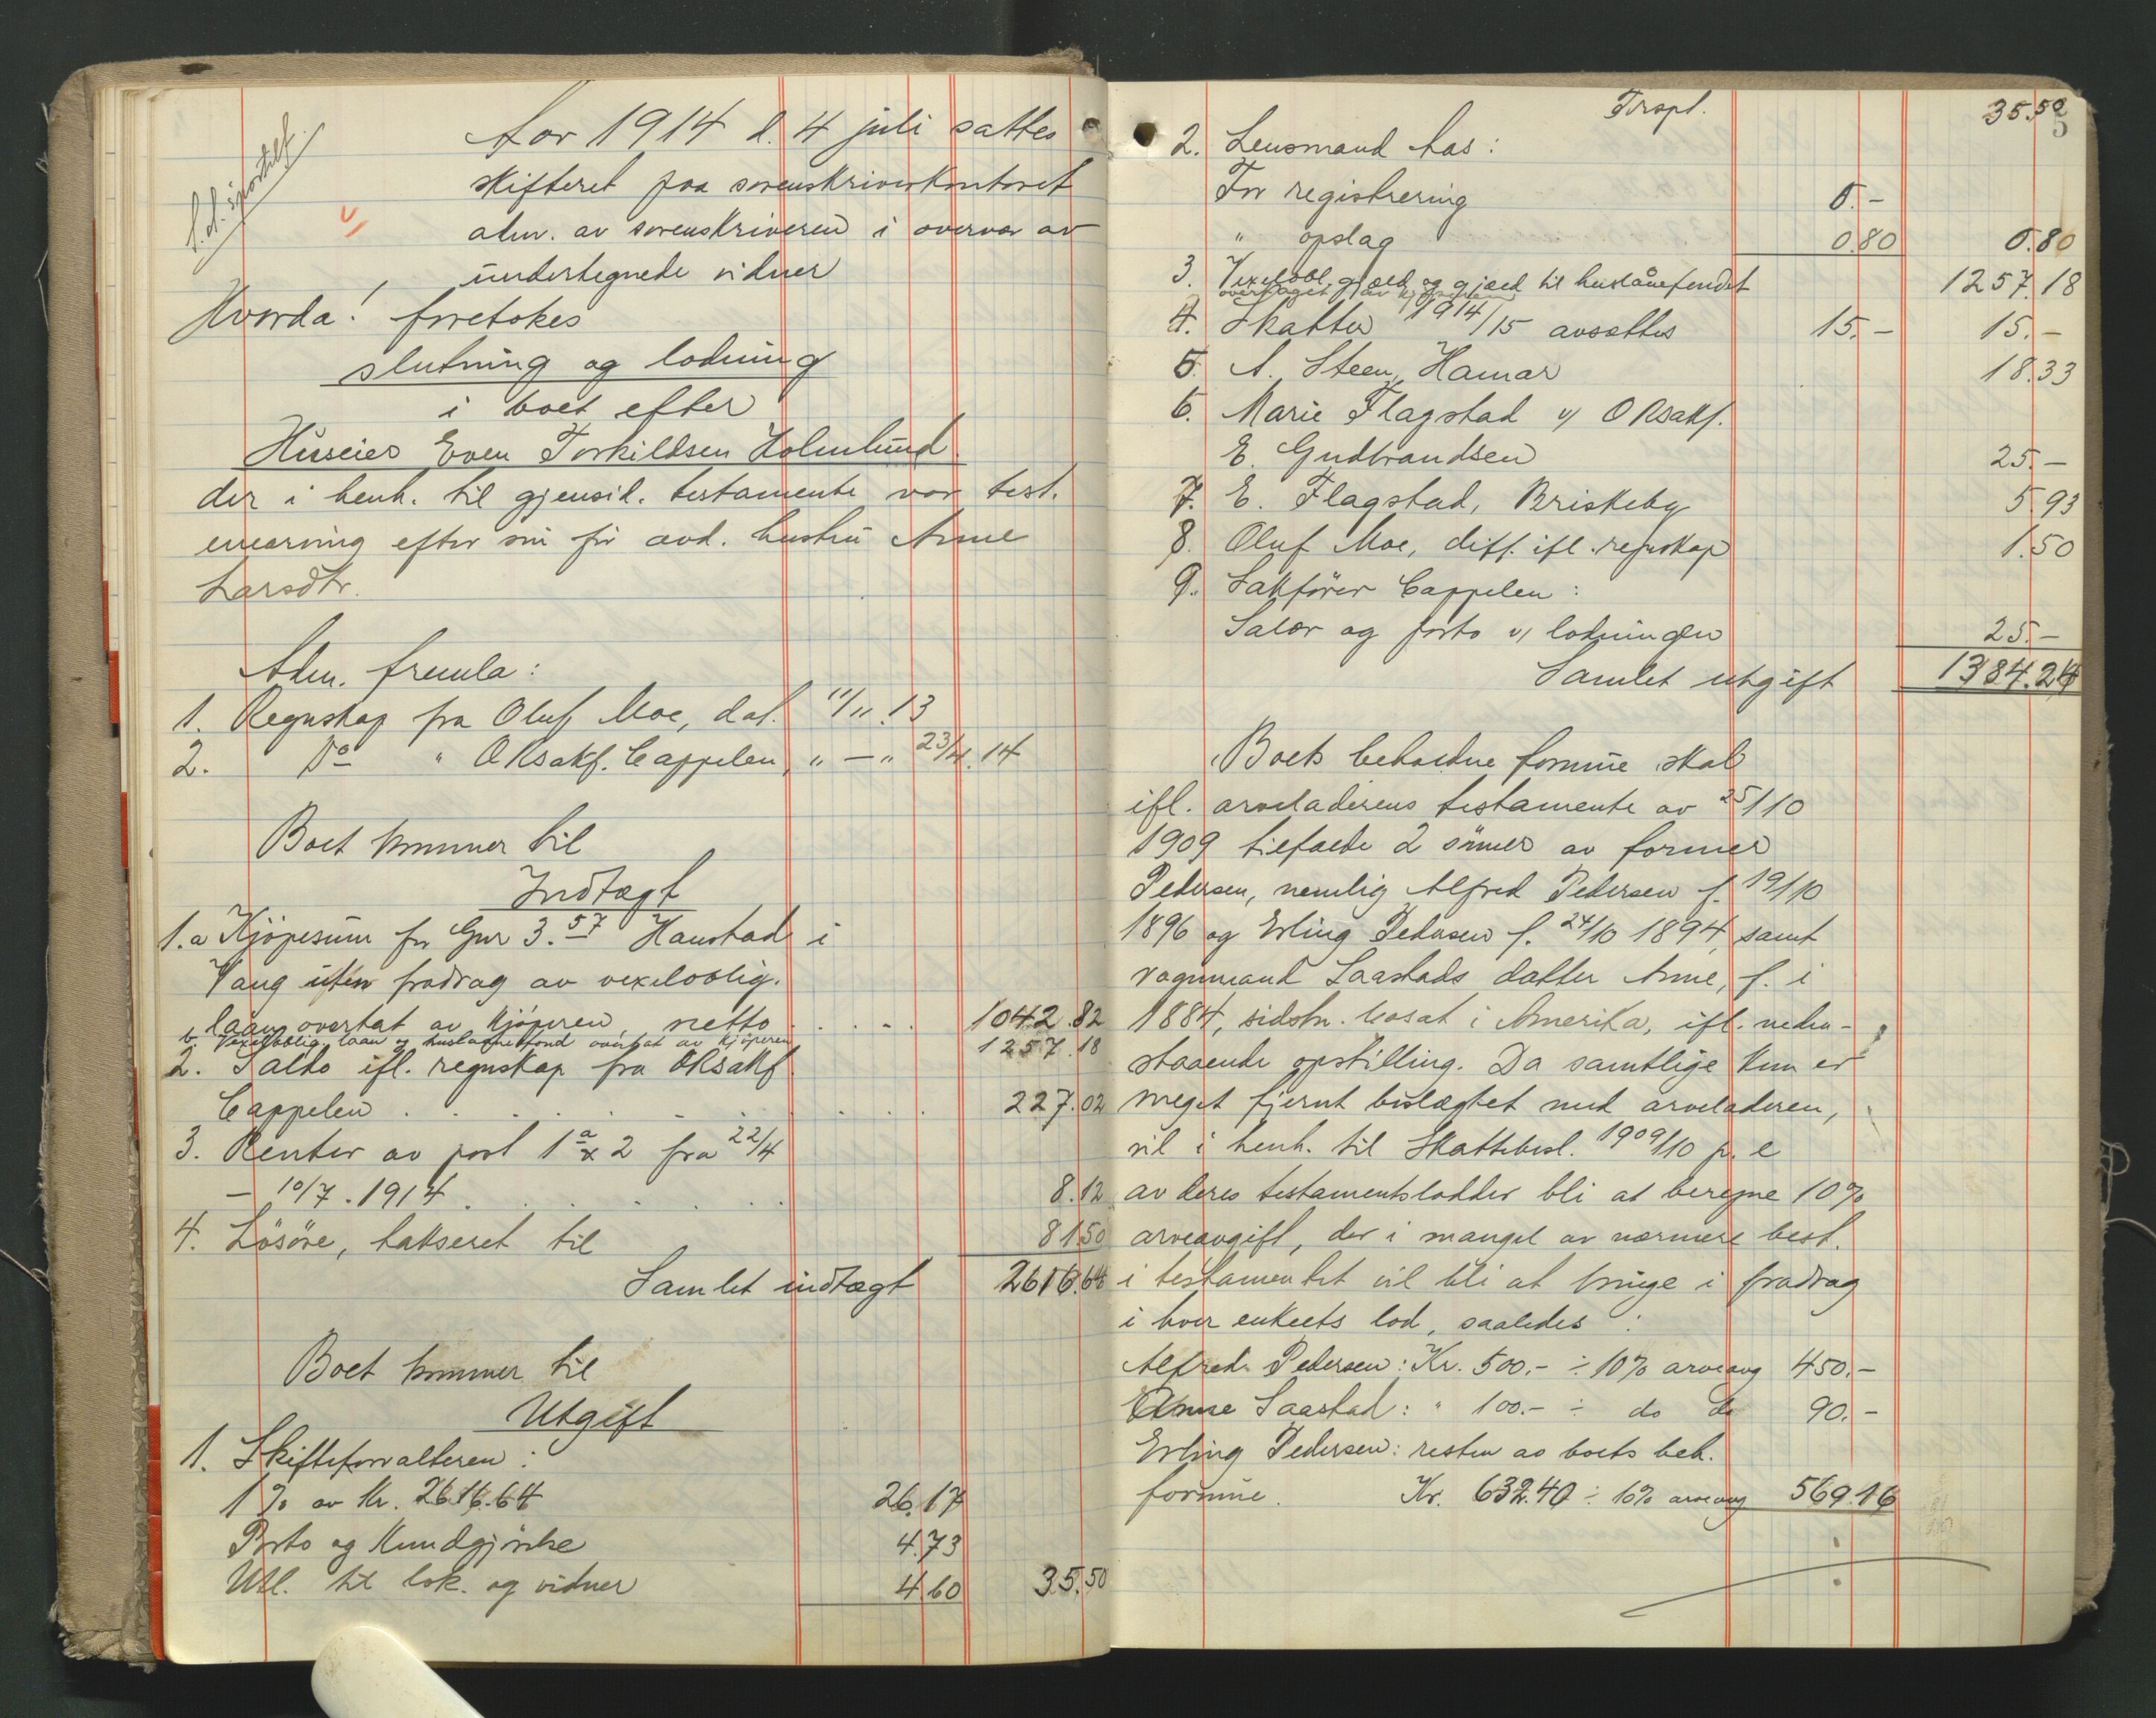 Aar 1914 d. 4 juli sattes
skifteret paa sorenskriverkontoret
adm. av sorenskriveren i overvær av
undertegnede vidner
Hvorda! foretokes
slutning og lodning
i boet efter
Huseier Even Torkildsen Holmlund.
der i henh. til gjensid. testamente var test.
enearving efter sin før avd. hustru Anne
Larsdtr.
Adm. fremla:
1. Regnskap fra Oluf Moe, dat. 11/11.13
2. Do " ORsakf. Cappelen, " — " 23/4.14
Boet kommer til
Indtægt
1.a Kjøpesum for Gnr 3.57 Hanstad i
Vang uten fradrag av vexeloblig.
laan overtat av kjøperen, netto . . . . 1042.82
b. Vexeloblig. laan og huslaanefond overtat av kjøperen 1257.18
2. Saldo ifl. regnskap fra ORsakf.
Cappelen . . . . . . . . . . 227.02
3. Renter av post 1a & 2 fra 22/4
— 10/7. 1914 . . . . . . 8.12
4. Løsøre, takseret til 81.50
Samlet indtægt 2616.64
Boet kommer til
Utgift
1. Skifteforvalteren:
1% av Kr. 2616.64 26.17
Porto og kundgjørelse 4.73
Utl. til lok. og vidner 4.60 35.50
Trspt. 35.50
2. Lensmand has:
For registrering 0.-
" opslag 0.80 0.80
3. Vexelobl. gjæld og gjæld til huslånefondet 1257.18
overtaget av kjøperen
4. Skatter 1914/15 avsættes 15.- 15.-
5. A. Steen, Hamar 18.33
6. Marie Flagstad v/ ORsakf.
E. Gudbrandsen 25.-
7. E. Flagstad, Briskeby 5.93
8. Oluf Moe, diff. ifl. regnskap 1.50
9. Sakfører Cappelen:
Salær og porto v/ lodningen 25.-
Samlet utgift 1384.24
Boets beholdne formue skal
ifl. arveladerens testamente av 25/10
1909 tilfalde 2 sønner av former
Pedersen, nemlig Alfred Pedersen f. 19/10
1896 og Erling Pedersen f. 24/10 1894, samt
vognmand Saastads datter Anne, f. i
1884, sidstn. bosat i Amerika, ifl. neden-
staaende opstilling. Da samtlige kun er
meget fjernt beslægtet med arveladeren,
vil i henh. til Skattebesl. 1909/10 p. e
av deres testamentslodder bli at beregne 10%
arveavgift, der i mangel av nærmere best.
i testamentet vil bli at bringe i fradrag
i hver enkelts lod, saaledes:
Alfred Pedersen: Kr. 500.- ÷ 10% arveavg 450.-
Anne Saastad: " 100.- ÷ do do 90.-
Erling Pedersen: resten av boets beh.
formue. Kr. 632.40 ÷ 10% arveavg 569.16